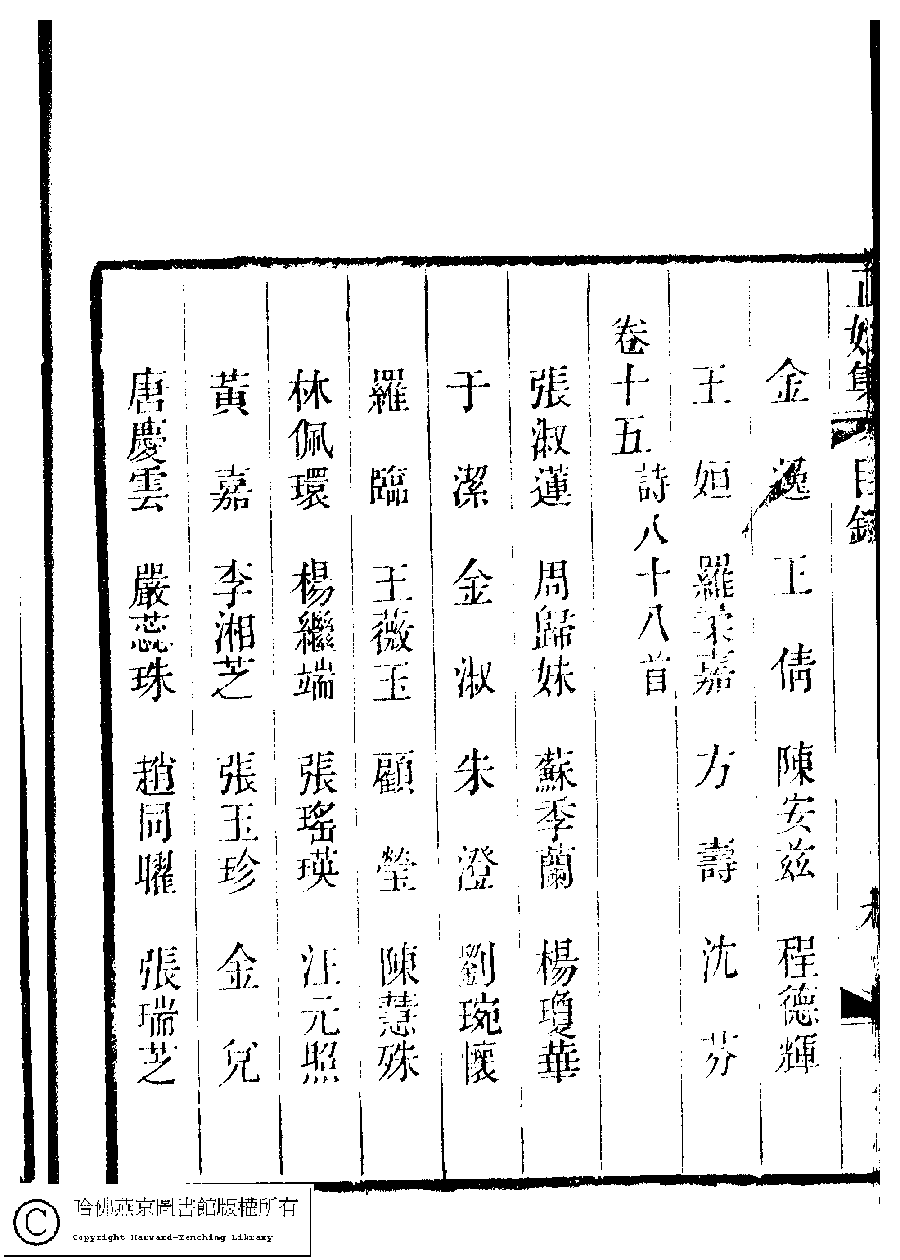 正始集 目錄
金逸 王倩 陳安茲 程德輝
王姮 羅柔嘉 方壽 沈芬
卷十五 詩八十八首
張淑蓮 周歸妹 蘇季蘭 楊瓊華
于潔 金淑 朱澄 劉琬懷
羅臨 王薇玉 顧瑩 陳慧殊
林佩環 楊繼端 張瑤瑛 汪元照
黃嘉 李湘芝 張玉珍 金兌
唐慶雲 嚴蕊珠 趙同曜 張瑞芝
哈佛燕京圖書館版權所有
Copyright Harvard-Yenching Library